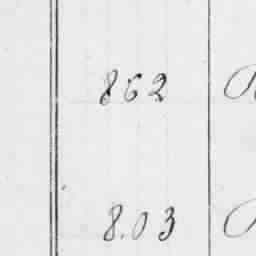 862
8.03